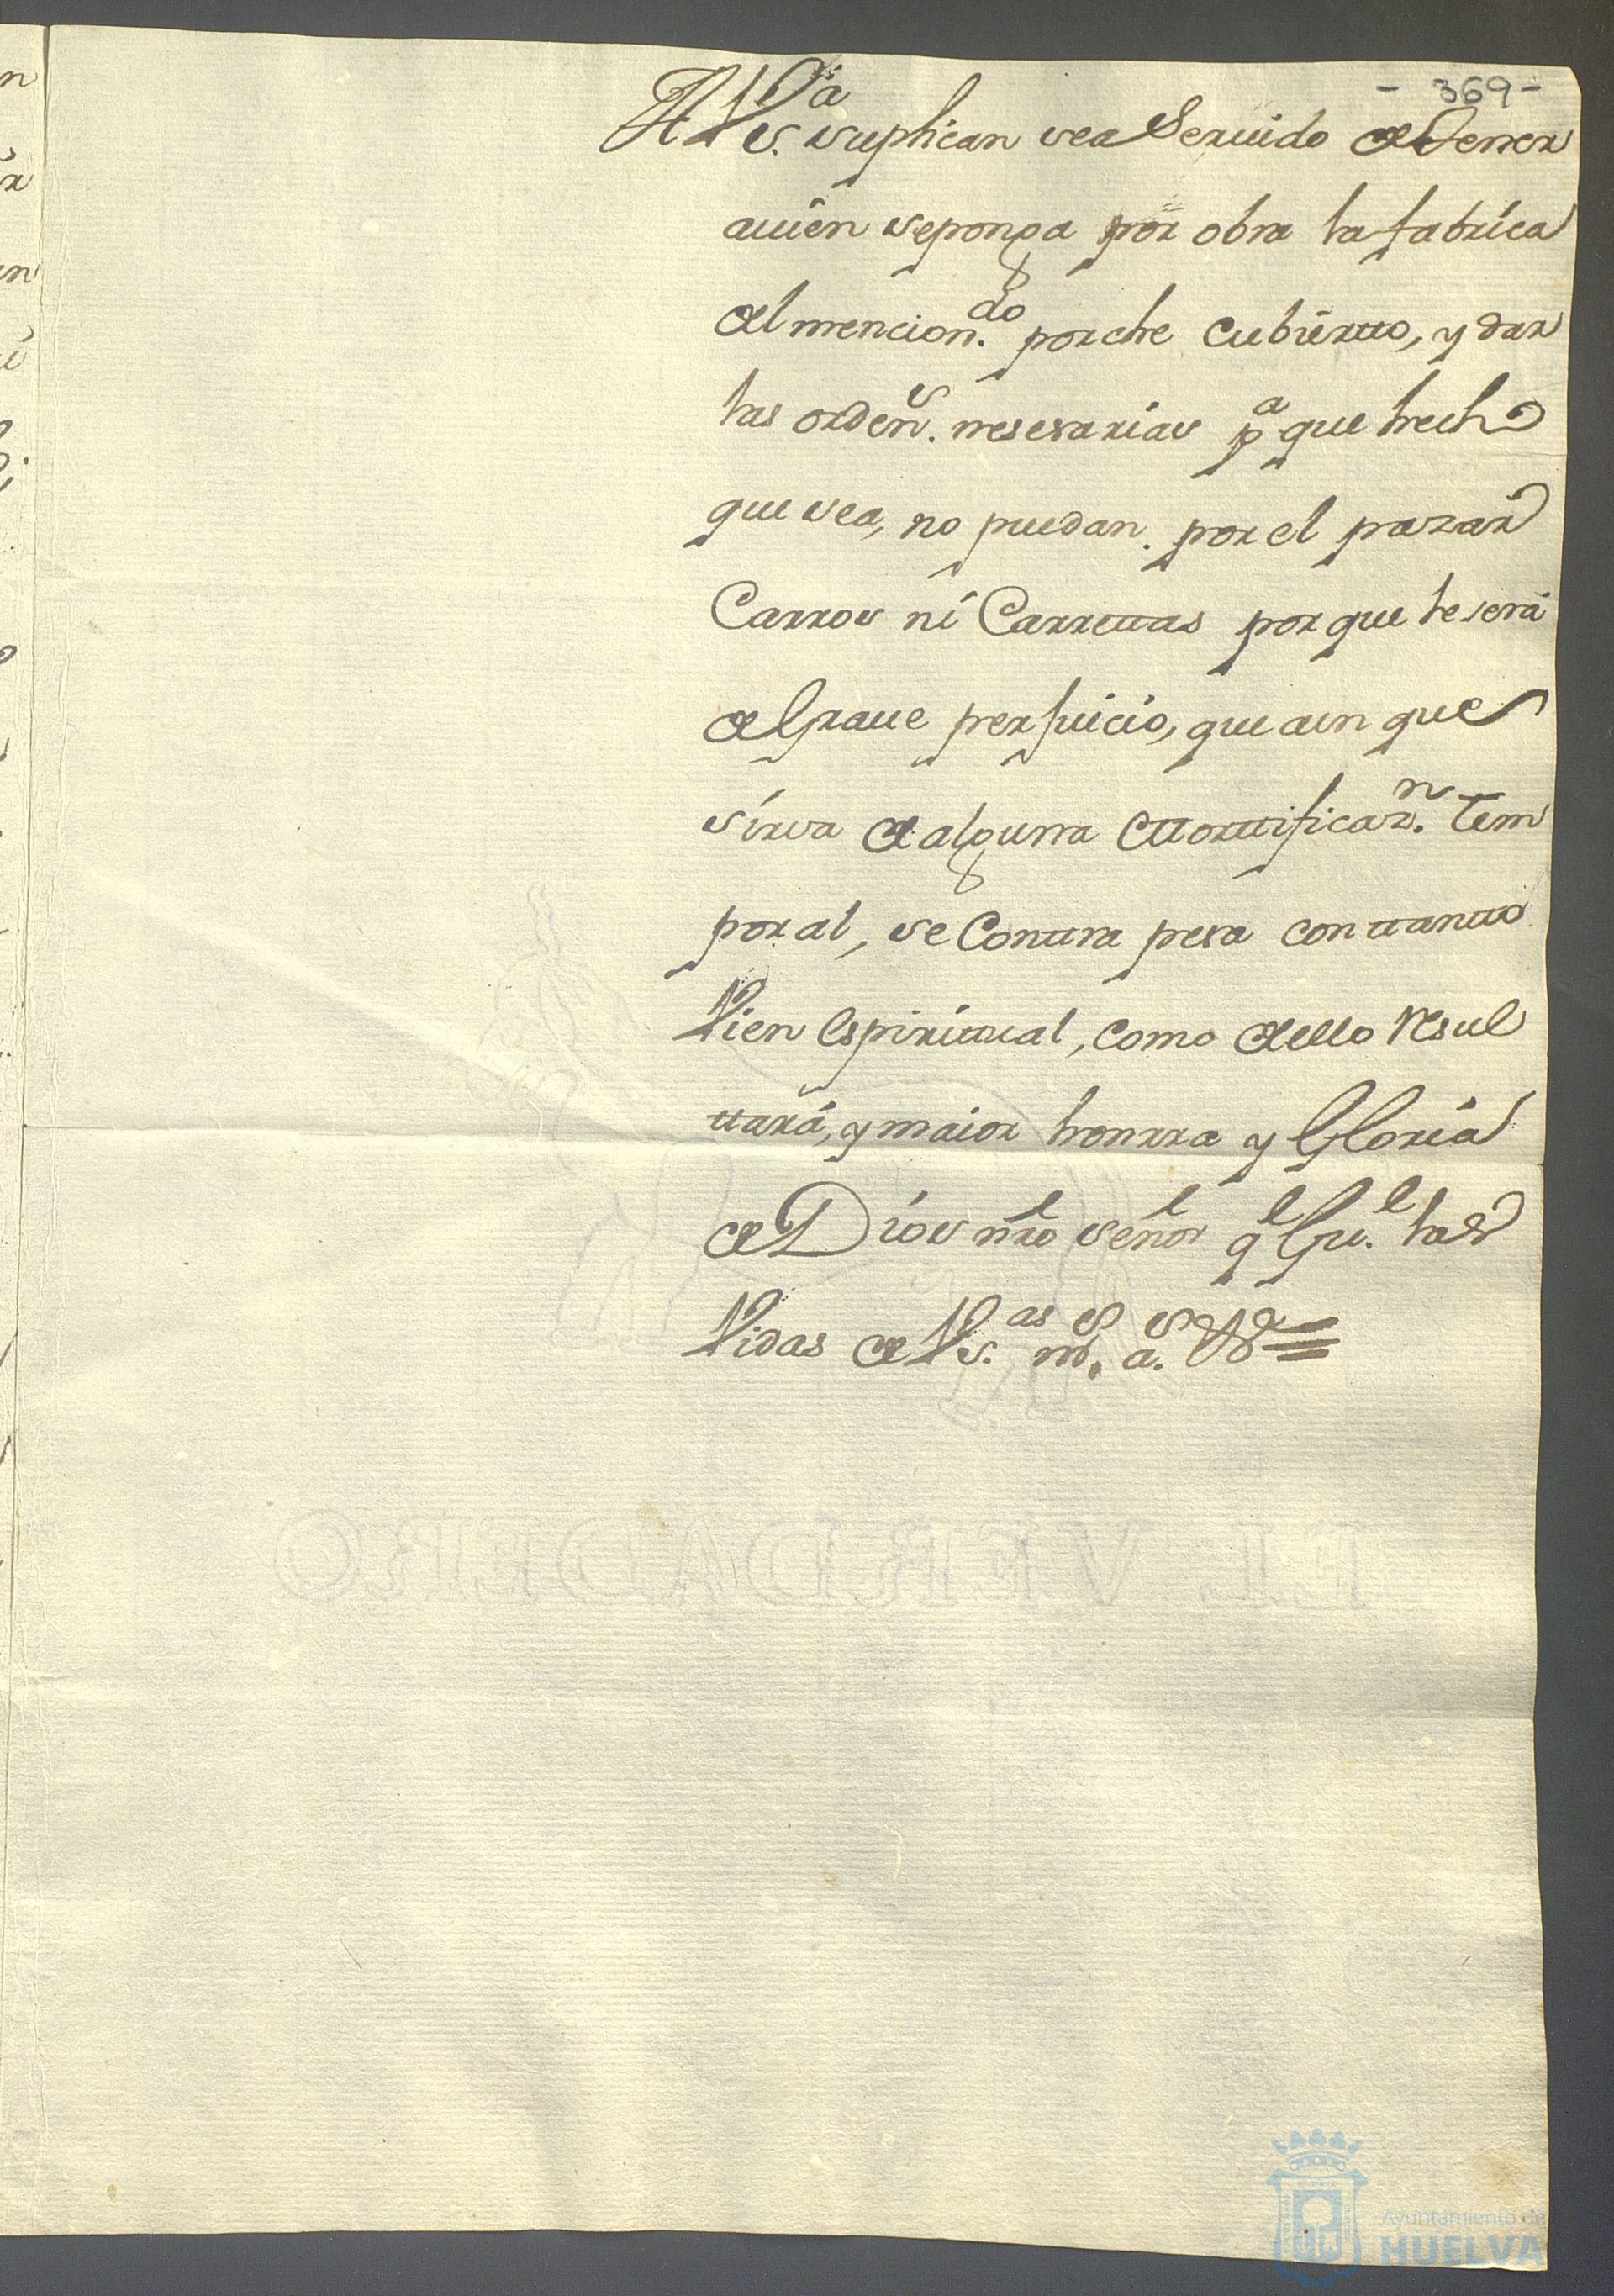 - 369 -
A V.S.ª suplican sea Seruido de tener
auien se ponga por obra la fabrica
del mencion.do porche Cubiertto, y dar
las orden.s nesesarias p.a que hecho
que sea, no puedan por el pazar
Carros ni Carrettas porque le será
de Graue perjuicio, que aun que
sirva de alguna Morttificaz.n Tem
poral, se Conttra pesa con ttantto
Vien Espirittual, como de ello Resul
ttará, y maior honrra y Gloria
de Dios nro señor q.e Gu.e las
Vidas de V.S.as m.s a.s
EL VERDADERO
Ayuntamiento de
HUELVA